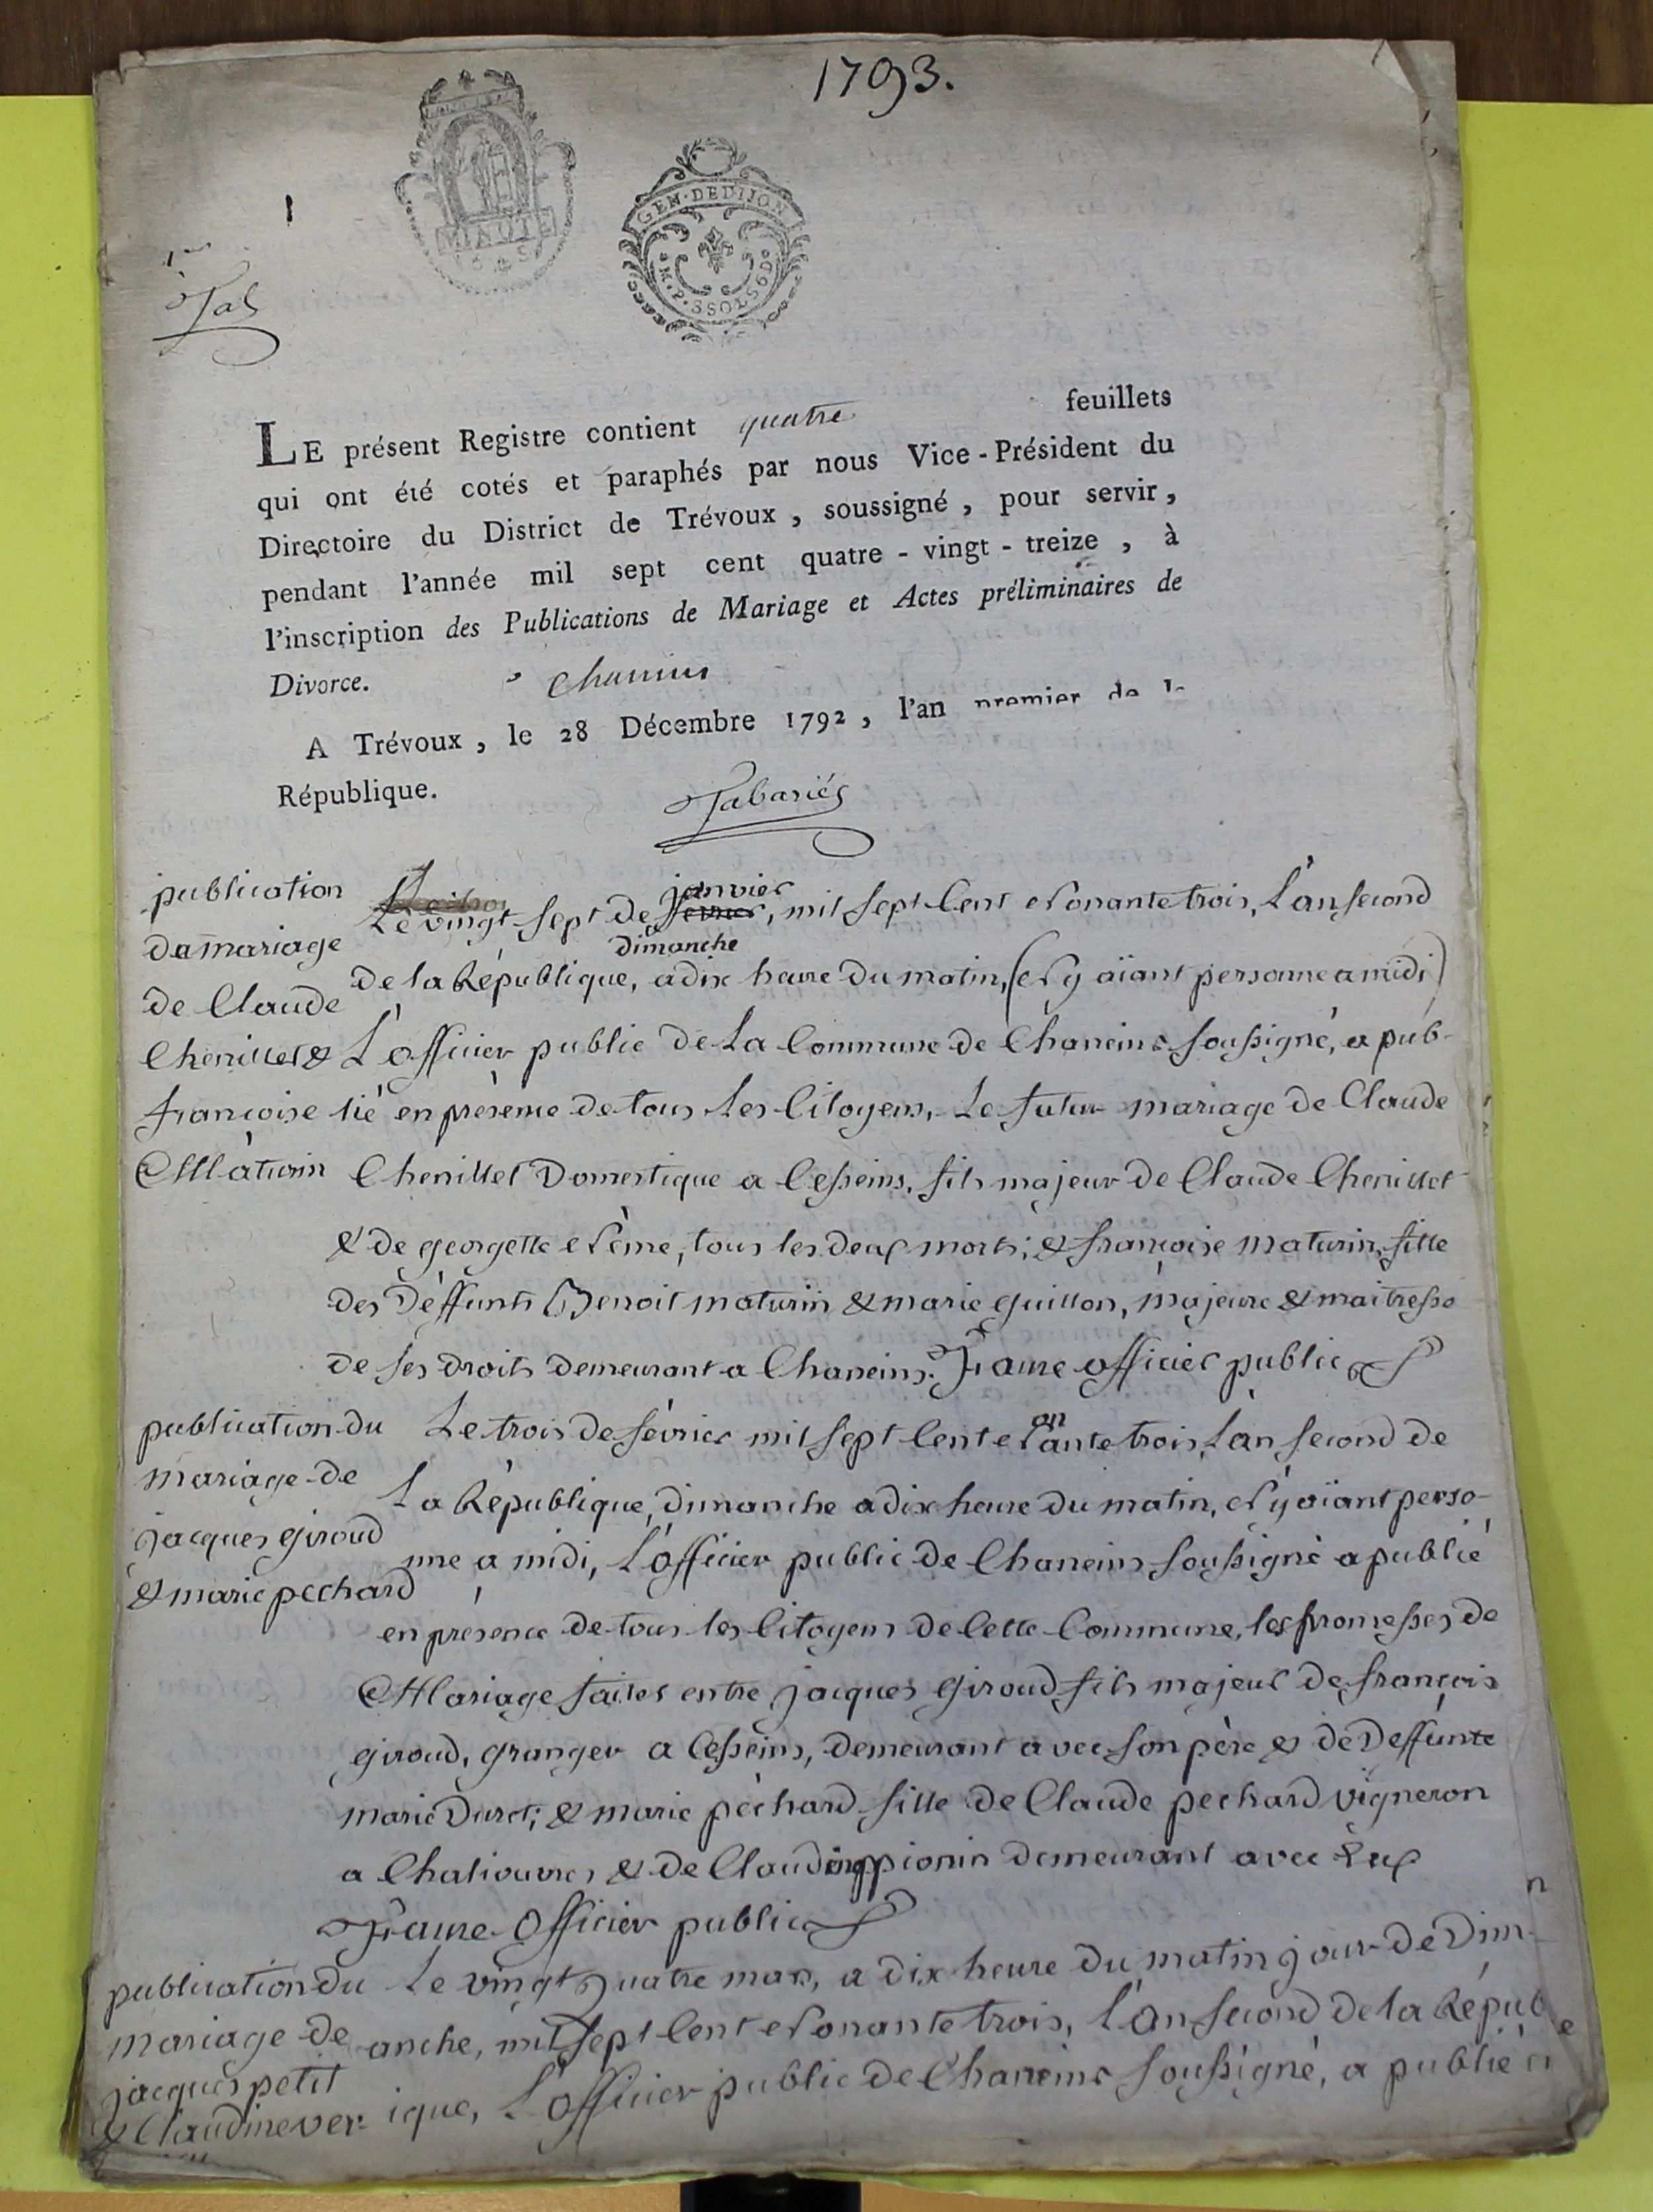 1793.
MINUTE
GEN. DE DIJON
M. P. 3 SOLS 6 D
1
1er
Tab
LE présent Registre contient quatre feuillets
qui ont été cotés et paraphés par nous Vice-Président du
Directoire du District de Trévoux, soussigné, pour servir,
pendant l'année mil sept cent quatre-vingt-treize, à
l'inscription des Publications de Mariage et Actes préliminaires de
Divorce. Chaneins
A Trévoux, le 28 Décembre 1792, l'an premier de la
République.
Tabariés
publication
du mariage
de Claude
Chenillet &
françoise
Maturin
janvier
Le vingt-sept de fevrier, mil sept Cent Nonante trois, L'an second
dimanche
de la République, a dix heure du matin, (N'y aïant personne a midi)
L'officier public de La Commune de Chaneins soussigné, a pub-
lié en présence de tous Les Citoyens, Le futur mariage de Claude
Chenillet Domestique a Cesseins, fils majeur de Claude Chenillet
& de georgette Nême, tous les deux morts; & françoise maturin, fille
des Déffunts Benoit maturin & marie guillon, majeure & maitresse
de ses droits demeurant a Chaneins. Frame officier public
publication du
mariage de
jacques giroud
& marie pechard
on
Le trois de février mil sept Cent Nante trois, L'an second de
La République, dimanche a dix heure du matin, N'y aïant perso-
nne a midi, L'officier public de Chaneins soussigné a publié
en présence de tous les Citoyens de Cette Commune, les promesses de
Mariage faites entre jacques giroud fils majeur de françois
giroud, granger a Cesseins, demeurant avec son père & de Deffunte
marie Duret; & marie péchard fille de Claude pechard vigneron
a Chaliouvres & de Claudine pionin demeurant avec Eux
Frame Officier public
publication du
mariage de
jacques petit
& Claudine ver-
Le vingt quatre mars, a dix heure du matin jour de Dim-
anche, mil sept Cent Nonante trois, L'an second de la Répub
ique, L'officier public de Chaneins soussigné, a publié